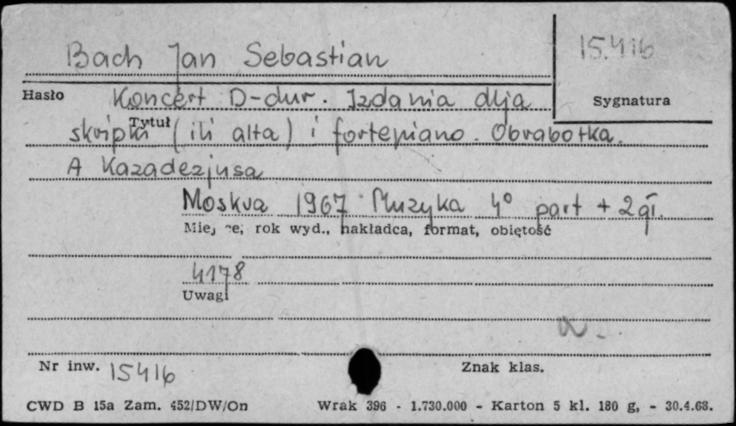 15.416
Bach Jan Sebastian
Hasło Koncert D-dur. Izdania dlja Sygnatura
Tytuł
skripki (ili alta) i fortepiano. Obrabotka.
A Kazadezjusa
Moskva 1967 Muzyka 4° part + 2 gł.
Miejsce, rok wyd., nakładca, format, objętość
4178
Uwagi
Nr inw. 15416 Znak klas.
CWD B 15a Zam. 452/DW/On Wrak 396 - 1.730.000 - Karton 5 kl. 180 g, - 30.4.68.